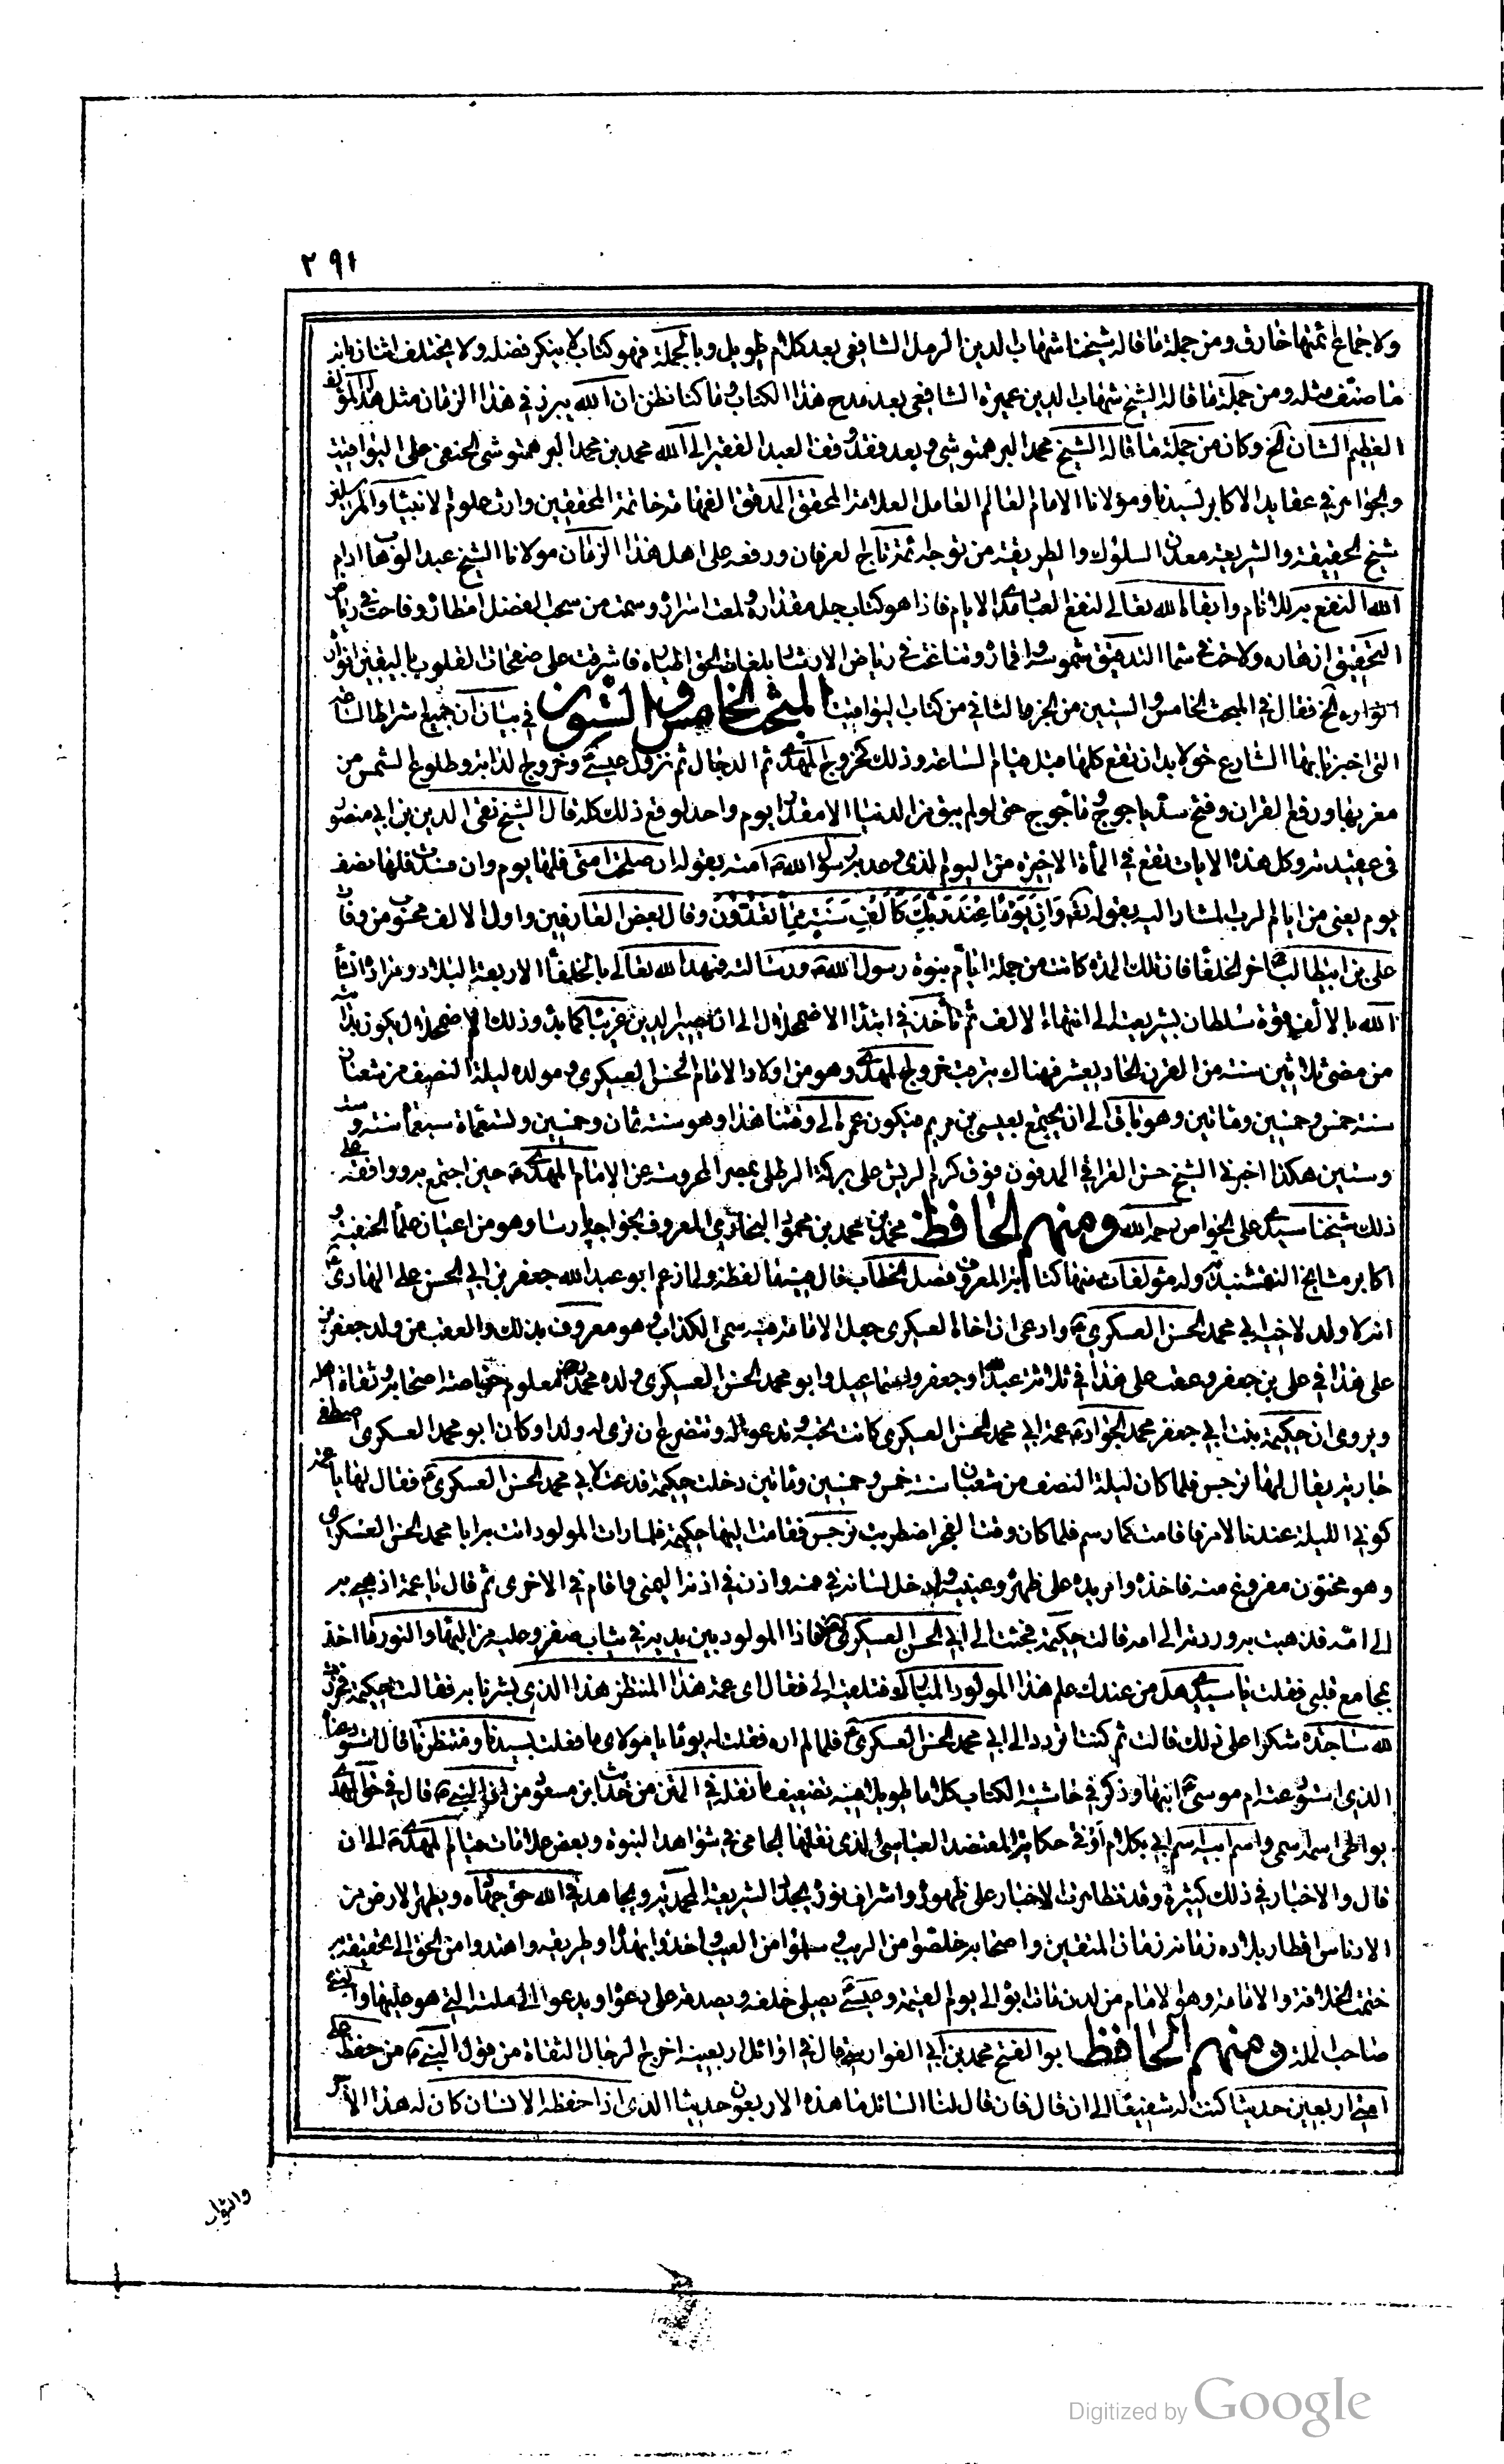 ٢٩١
ولاجماع ائمتها خارق ومن جملة ما قاله شيخنا شهاب الدين الرملى الشافعى بعد كلام طويل وبالجملة فهو كتاب لا ينكر فضله ولا يختلف اثنان بانه
ما صنف مثله ومن جملة ما قاله الشيخ شهاب الدين عميرة الشافعى بعد مدح هذا الكتاب وما كنا نظن ان الله يبرز فى هذا الزمان مثل هذا المؤلف
العظيم الشان الخ وكان من جملة ما قاله الشيخ محمد البرهمتوشى وبعد فقد وقف العبد الفقير الى الله محمد بن محمد البرهمتوشى الحنفى على اليواقيت
والجواهر فى عقايد الاكابر لسيدنا ومولانا الامام العالم العامل العلامة المحقق المدقق الفهامة خاتمة المحققين وارث علوم الانبياء والمرسلين
شيخ الحقيقة والشريعة معدن السلوك والطريقة من توجه الله تاج العرفان ورفعه على اهل هذا الزمان مولانا الشيخ عبد الوهاب ادام
الله النفع به للانام وابقاه الله تعالى لنفع العباد مدى الايام فاذا هو كتاب جل مقداره ولمعت اسراره وسمت من سحب الفضل امطاره وفاحت فى رياض
التحقيق ازهاره ولاحت فى سماء التدقيق شموسه واقماره وتناغت فى رياض الارشاد بلغات الحق اطياره فاشرقت على صفحات القلوب باليقين انواره
الخ فقال فى المبحث الخامس والستين من الجزء الثانى من كتاب اليواقيت المبحث الخامس والستون فى بيان ان جميع اشراط الساعة
التى اخبرنا بها الشارع حق لا بد ان تقع كلها قبل قيام الساعة وذلك كخروج المهدى ثم الدجال ثم نزول عيسى وخروج الدابة وطلوع الشمس من
مغربها ورفع القران وفتح سد ياجوج وماجوج حتى لو لم يبق من الدنيا الا مقدار يوم واحد لوقع ذلك كله قال الشيخ تقى الدين بن ابى منصور
فى عقيدته وكل هذه الايات تقع فى المأة الاخيرة من اليوم الذى وعد به رسول الله ص امته بقوله ان صلحت امتى فلها يوم وان فسدت فلها نصف
يوم يعنى من ايام الرب المشار اليه بقوله تعالى وَاِنَّ يَوْمًا عِنْدَ رَبِّكَ كَاَلْفِ سَنَةٍ مِمَّا تَعُدُّونَ وقال بعض العارفين واول الالف محسوب من وفات
على بن ابيطالب ع اخر الخلفاء فان تلك المدة كانت من جملة ايام نبوة رسول الله ص ورسالته فمهد الله تعالى بالخلفاء الاربعة البلاد ومراده انشاء
الله بالالف قوة سلطان شريعته الى انتهاء الالف ثم تأخذ فى ابتداء الاضمحلال الى ان يصير الدين غريبا كما بدء وذلك الاضمحلال يكون بدايته
من مضى ثلاثين سنة من القرن الحاديعشر فهناك يترقب خروج المهدى وهو من اولاد الامام الحسن العسكرى ومولده ليلة النصف من شعبان
سنة خمس وخمسين ومأتين وهو باق الى ان يجتمع بعيسى بن مريم فيكون عمره الى وقتنا هذا وهو سنة ثمان وخمسين وتسعمأة سبعمأة سنة وست
وستين هكذا اخبرنى الشيخ حسن العراقى المدفون فوق كوم الريش على بركة الرطلى بمصر المحروسة عن الامام المهدى حين اجتمع به ووافقه على
ذلك شيخنا سيدى على الخواص رحمه الله ومنهم الحافظ محمد بن محمد بن محمود البخارى المعروف بخواجه پارسا وهو من اعيان علماء الحنفية و
اكابر مشايخ النقشبندية وله مؤلفات منها كتابه المعروف بفصل الخطاب قال فيه ما لفظه ولما زعم ابو عبد الله جعفر بن ابى الحسن على الهادى ع
انه لا ولد لاخيه ابى محمد الحسن العسكرى ع وادعى ان اخاه العسكرى جعل الامامة فيه سمى الكذاب وهو معروف بذلك والعقب من ولد جعفر بن
على هذا فى على بن جعفر وعقب على هذا فى ثلاثة عبد الله وجعفر واسماعيل وابو محمد الحسن العسكرى ولده محمد معلوم عند خاصة اصحابه وثقاة اهله
ويروى ان حكيمة بنت ابى جعفر محمد الجواد عمة ابى محمد الحسن العسكرى كانت تحبه وتدعو له وتتضرع ان ترى له ولدا وكان ابو محمد العسكرى اصطفى
جارية يقال لها نرجس فلما كان ليلة النصف من شعبان سنة خمس وخمسين ومأتين دخلت حكيمة فدعت لابى محمد الحسن العسكرى ع فقال لها يا عمة
كونى الليلة عندنا لامر فاقامت كما رسم فلما كان وقت الفجر اضطربت نرجس فقامت اليها حكيمة فلما رات المولود اتت به ابا محمد الحسن العسكرى
وهو مختون مفروغ منه فاخذه وامر يده على ظهره وعينيه وادخل لسانه فى فمه واذن فى اذنه اليمنى واقام فى الاخرى ثم قال يا عمة اذهبى به
الى امه فذهبت به وردته الى امه قالت حكيمة فجئت الى ابى الحسن العسكرى فاذا المولود بين يديه فى ثياب صفر وعليه من البهاء والنور ما اخذ
بمجامع قلبى فقلت يا سيدى هل من عندك علم هذا المولود المبارك فتلقيه الى فقال اى عمة هذا المنتظر هذا الذى بشرنا به فقالت حكيمة فخررت
لله ساجدة شكرا على ذلك قالت ثم كنت اتردد الى ابى محمد الحسن العسكرى ع فلما لم اره فقلت له يوما يا مولاى ما فعلت بسيدنا ومنتظرنا قال استودعناه
الذى استودعته ام موسى ع ابنها وذكر فى حاشية الكتاب كلاما طويلا فيه تضعيف ما نقله فى المتن من حديث ابن مسعود من ان النبى ص قال فى حق المهدى
يواطى اسمه اسمى واسم ابيه اسم ابى بكلام اوفى حكاية المعتضد العباسى الذى نقلها الجامى فى شواهد النبوة وبعض علامات قيام المهدى الى ان
قال والاخبار فى ذلك كثيرة وقد تظاهرت الاخبار على ظهوره واشراق نوره يجدد الشريعة المحمدية ويجاهد فى الله حق جهاده ويطهر الارض من
الادناس اقطار بلاده زمانه زمان المتقين واصحابه خلصوا من الريب وسلموا من العيب واخذوا بهداه وطريقه واهتدوا من الحق الى تحقيقه به
ختمت الخلافة والامامة وهو الامام من لدن مات ابوه الى يوم القيمة وعيسى يصلى خلفه ويصدقه على دعواه ويدعو الى ملته التى هو عليها والنبى
صاحب الملة ومنهم الحافظ ابو الفتح محمد بن ابى الفوارس قال فى اوائل اربعينه اخرج الرجال الثقاة من قول النبى ص من حفظ على
امتى اربعين حديثا كنت له شفيعا الى ان قال فان قال لنا السائل ما هذه الاربعون حديثا الذى اذا حفظه الانسان كان له هذا الاجر
والثواب
Digitized by Google